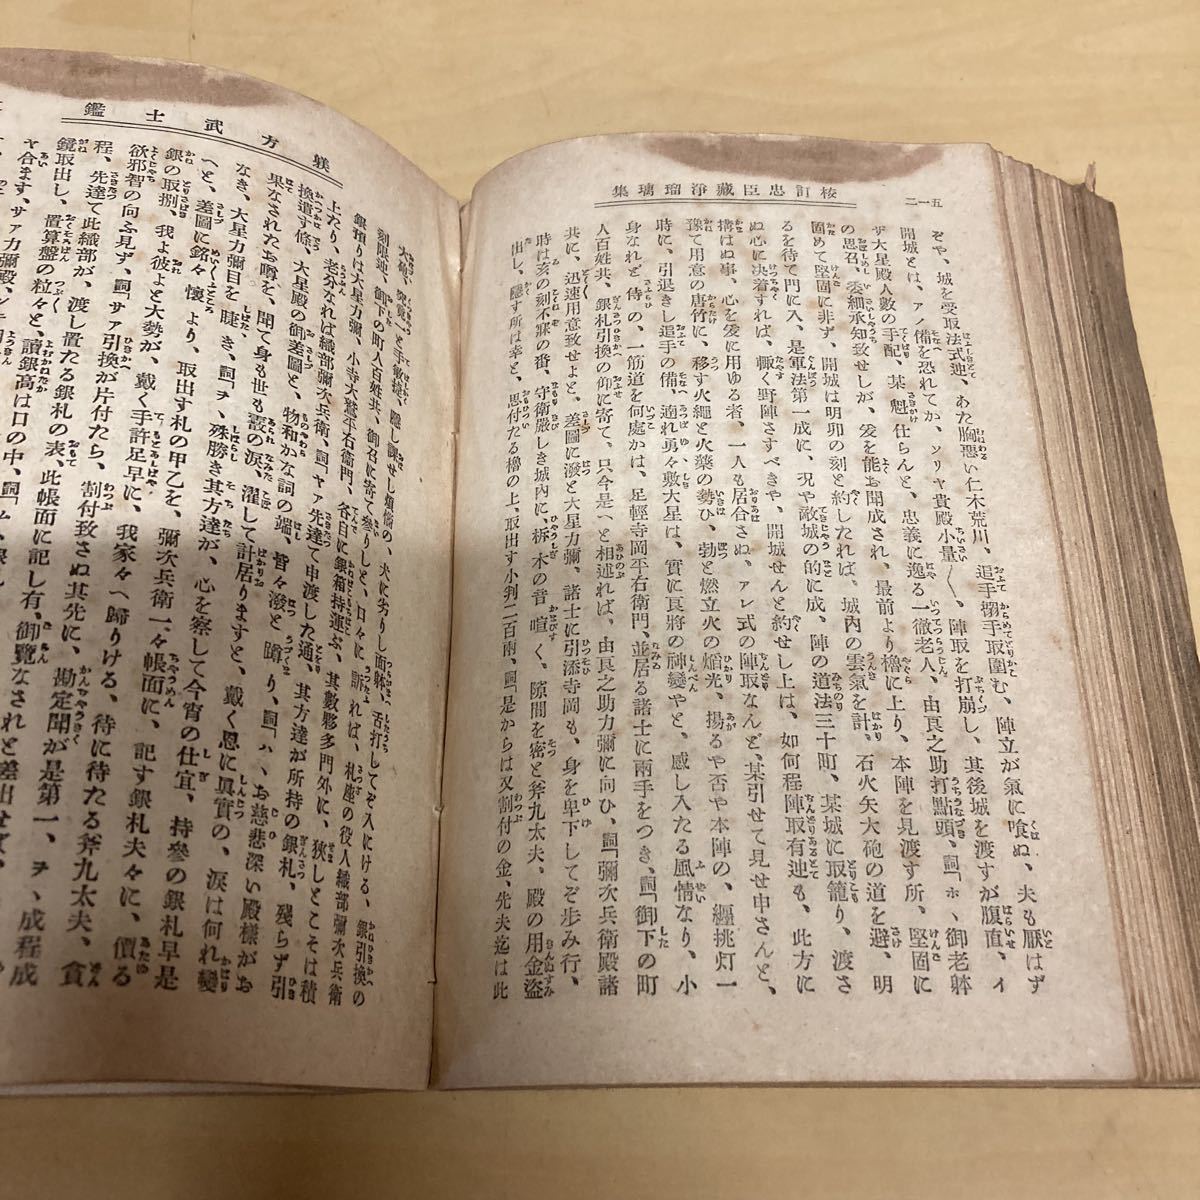 五一二
校訂忠臣藏淨瑠璃集
ぞや、城を受取法式迚、あた胸悪い仁木荒川、追手搦手取圍む、陣立が氣に喰ぬ、夫も厭はず
開城とは、アノ備を恐れてか、ソリャ貴殿小量〱、陣取を打崩し、其後城を渡すが腹直、イ
ザ大星殿人數の手配、某魁仕らんと、忠義に逸る一徹老人、由良之助打點頭、詞「ホヽ御老躰
の思召、委細承知致せしが、爰を能お聞成され、最前より櫓に上り、本陣を見渡す所、堅固に
固めて堅固に非ず、開城は明卯の刻と約したれば、城內の雲氣を計、石火矢大砲の道を避、明
るを待て門に入、是軍法第一成に、況や敵城の的に成、陣の道法三十町、某城に取籠り、渡さ
ぬ心に決着すれば、輙く野陣さすべきや、開城せんと約せし上は、如何程陣取有迚も、此方に
構はぬ事、心を爰に用ゆる者、一人も居合さぬ、アレ式の陣取なんど、某引せて見せ申さんと、
豫て用意の唐竹に、移す火繩と火藥の勢ひ、勃と燃立火の熖光、揚るや否や本陣の、纒挑灯一
時に、引退きし追手の備、適れ勇々敷大星は、實に良將の神變やと、感し入たる風情なり、小
身なれど侍の、一筋道を何處かは、足輕寺岡平右衛門、並居る諸士に兩手をつき、詞「御下の町
人百姓共、銀札引換の仰に寄て、只今是へと相述れば、由良之助力彌に向ひ、詞「彌次兵衛殿諸
共に、迅速用意致せよと、差圖に潑と大星力彌、諸士に引添寺岡も、身を卑下してぞ歩み行、
時は亥の刻不寐の番、守衛嚴しき城內に、柝木の音喧く、隙間を密と斧九太夫、殿の用金盜
出し、隱す所は幸と、思付たる櫓の上、取出す小判二百兩、詞「是からは又割付の金、先夫迄は此
躾方武士鑑
刻限迚、御下の町人百姓共、御召に寄て參りしと、日々に訴れば、札座の役人織部彌次兵衛
銀預りは大星力彌、小寺大鷲平右衞門、各目に銀箱持運ぶ、其數夥多門外に、狹しとこそは積
上たり、老分なれば織部彌次兵衛、詞「ヤァ先達て申渡した通、其方達が所持の銀札、殘らず引
換遣す條、大星殿の御差圖と、物和かな詞の端、皆々潑と蹲り、詞「ハヽお慈悲深い殿樣がお
果なされたお噂を、聞て身も世も霰の淚、濯して計居りますと、戴く恩に眞實の、淚は何れ變
なき、大星力彌目を睫き、詞「ヲヽ殊勝き其方達が、心を察して今宵の仕宜、持參の銀札早是
へと、差圖に銘々懷より、取出す札の甲乙を、彌次兵衛一々帳面に、記す銀札夫々に、價る
銀の取捌、我よ彼よと大勢が、戴く手許足早に、我家々へ歸りける、待に待たる斧九太夫、貪
欲邪智の向ふ見ず、詞「サァ引換が片付たら、割付致さぬ其先に、勘定聞が是第一、ヲヽ成程成
程、先達て此織部が、渡し置たる銀札の表、此帳面に記し有、御覽なされと差出せば、
鏡取出し、置算盤の粒々と、讀銀高は口の中、
ヤ合ます、サァ力彌殿、